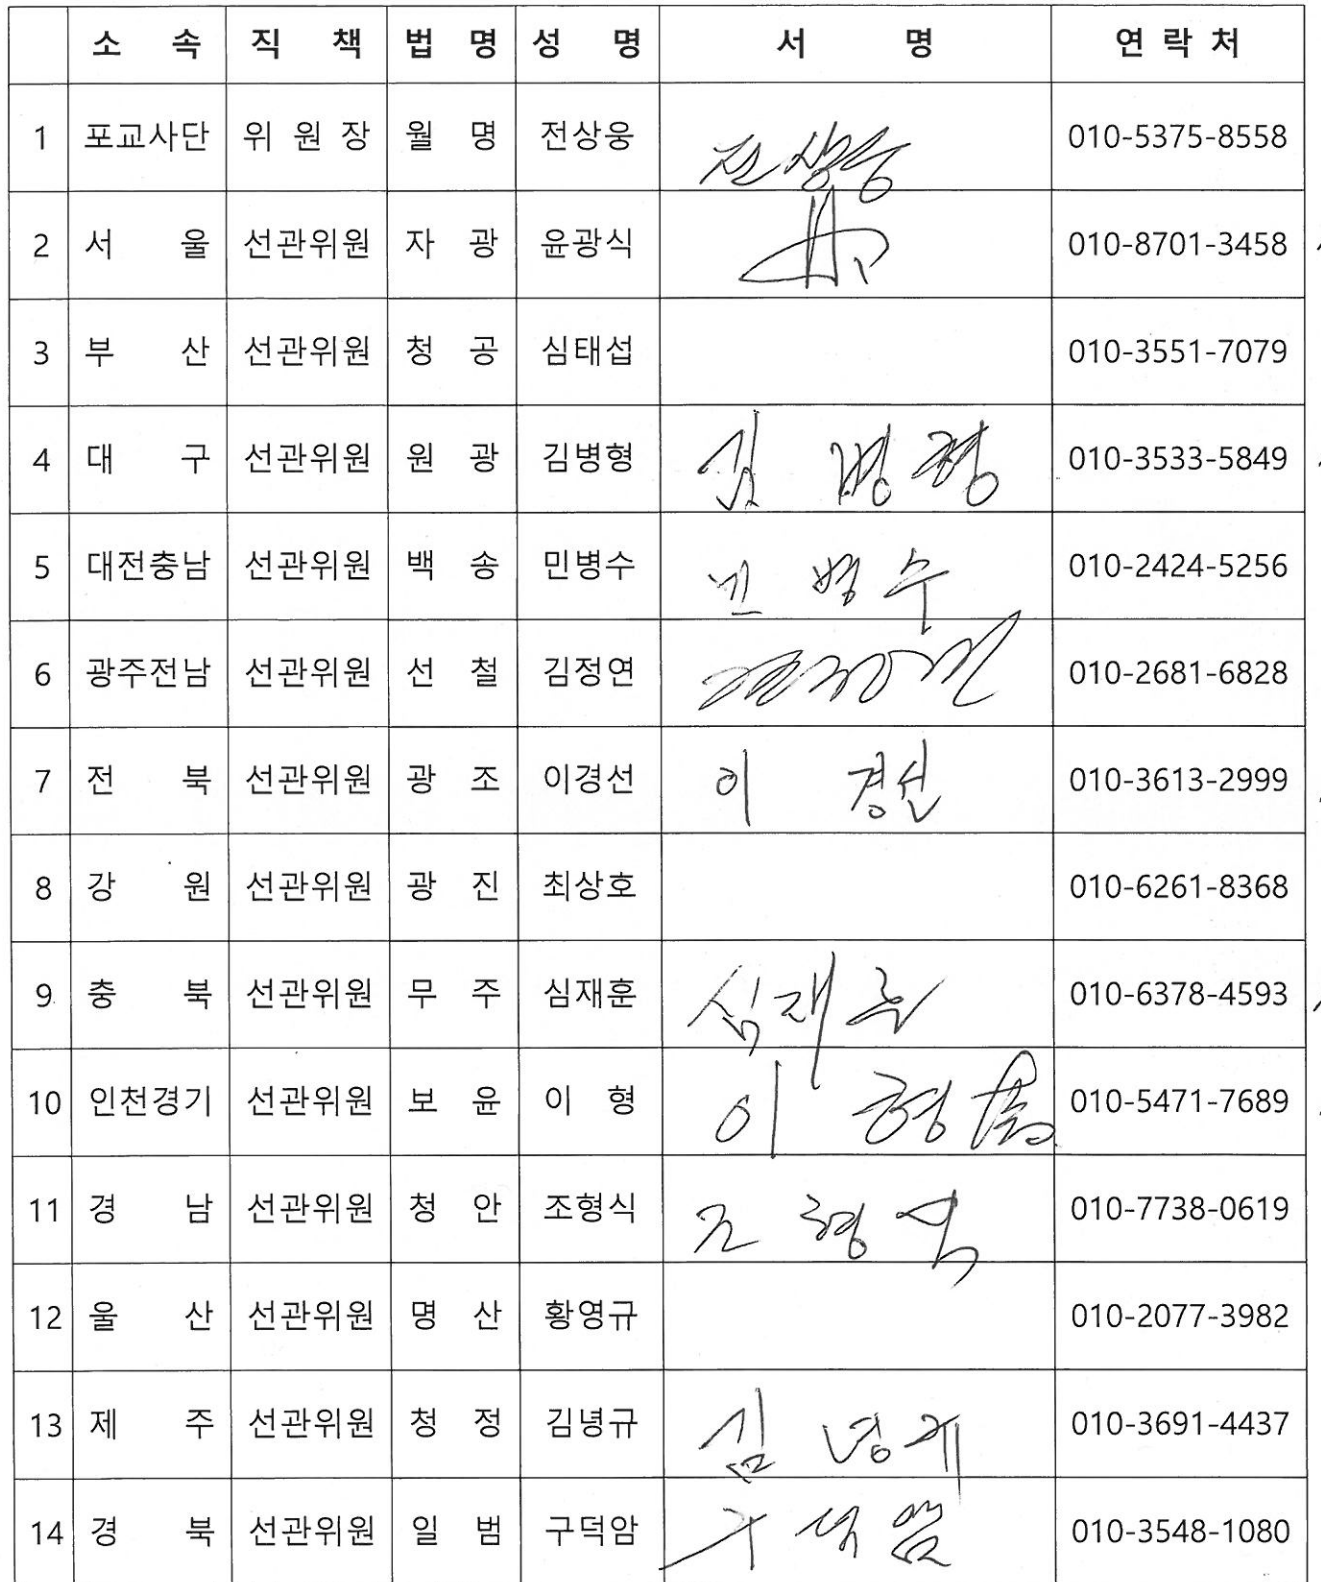 소 속 직 책 법 명 성 명 서 명 연 락 처
1 포교사단 위 원 장 월 명 전상웅 전상웅 010-5375-8558
2 서 울 선관위원 자 광 윤광식 010-8701-3458
3 부 산 선관위원 청 공 심태섭 010-3551-7079
4 대 구 선관위원 원 광 김병형 김 병형 010-3533-5849
5 대전충남 선관위원 백 송 민병수 민 병 수 010-2424-5256
6 광주전남 선관위원 선 철 김정연 010-2681-6828
7 전 북 선관위원 광 조 이경선 이 경선 010-3613-2999
8 강 원 선관위원 광 진 최상호 010-6261-8368
9 충 북 선관위원 무 주 심재훈 심재훈 010-6378-4593
10 인천경기 선관위원 보 윤 이 형 이 형 010-5471-7689
11 경 남 선관위원 청 안 조형식 조 형 식 010-7738-0619
12 울 산 선관위원 명 산 황영규 010-2077-3982
13 제 주 선관위원 청 정 김녕규 김 녕규 010-3691-4437
14 경 북 선관위원 일 범 구덕암 구 덕 암 010-3548-1080